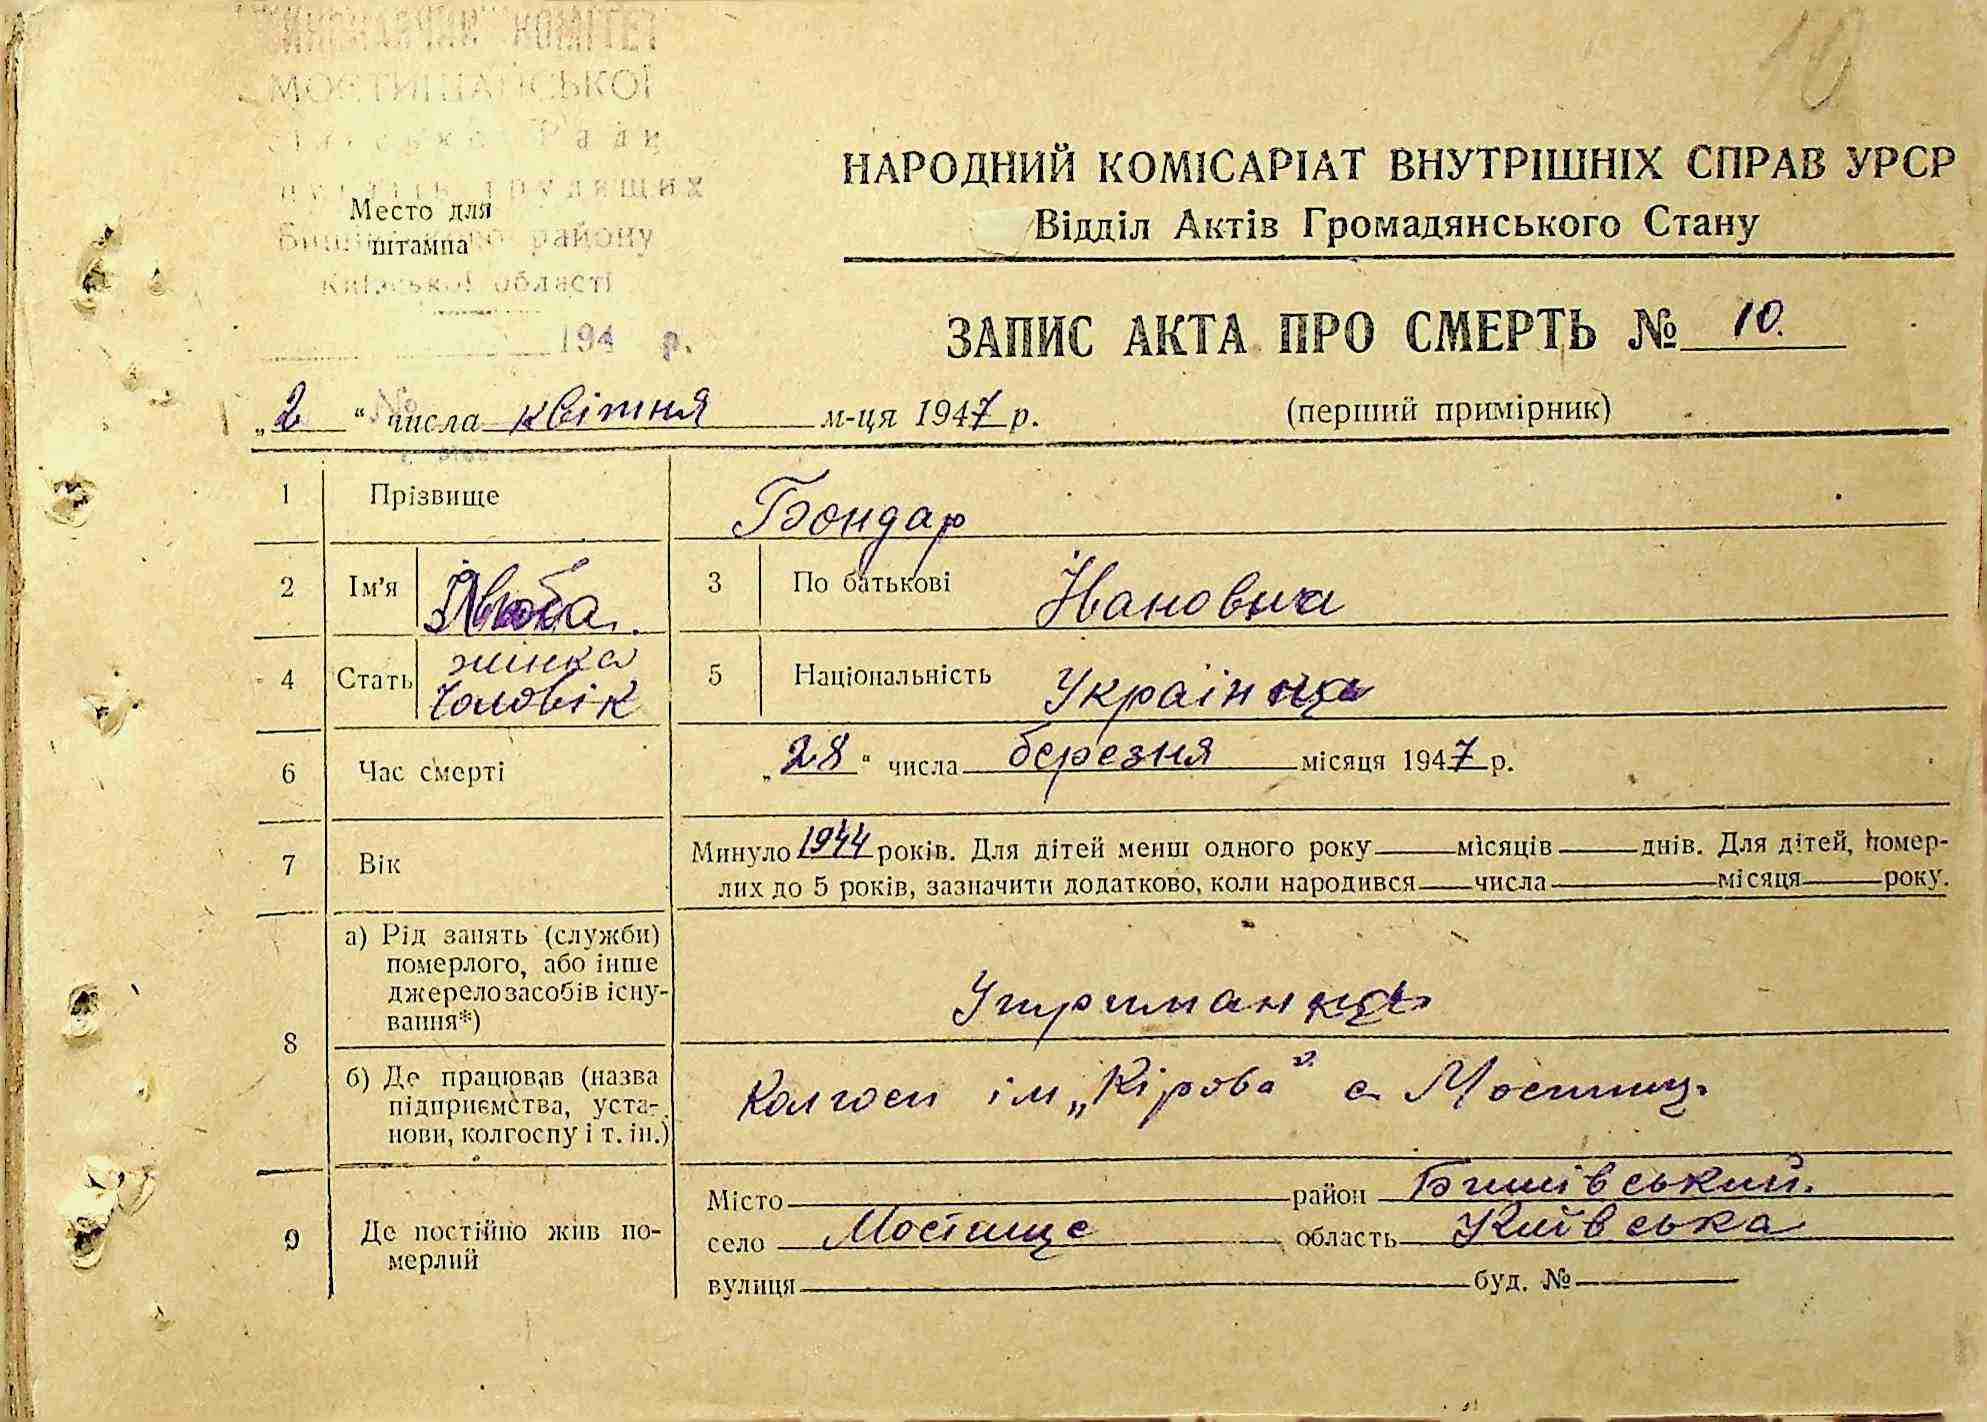 ВИКОНАВЧИЙ КОМІТЕТ
МОСТИЩАНСЬКОЇ
Ради
трудящих
Место для
району
штампа
Київської області
194 р.
10
НАРОДНИЙ КОМІСАРІАТ ВНУТРІШНІХ СПРАВ УРСР
Відділ Актів Громадянського Стану
ЗАПИС АКТА ПРО СМЕРТЬ № 10.
„2“ числа квітня м-ця 1947 р.
(перший примірник)
1 Прізвище Бондар
2 Ім'я Люба. 3 По батькові Івановна
4 Стать жінка чоловік 5 Національність Українка
6 Час смерті „28“ числа березня місяця 1947 р.
7 Вік Минуло 1944 років. Для дітей менш одного року місяців днів. Для дітей, помер-
лих до 5 років, зазначити додатково, коли народився числа місяця року.
8 а) Рід занять (служби)
померлого, або інше
джерело засобів існу-
вання*)
Утриманка
б) Де працював (назва
підприємства, уста-
нови, колгоспу і т. ін.)
Колгосп ім „Кірова“ с. Мостищ.
9 Де постійно жив по-
мерлий
Місто район Бишівський.
село Мостище область Київська
вулиця буд. №